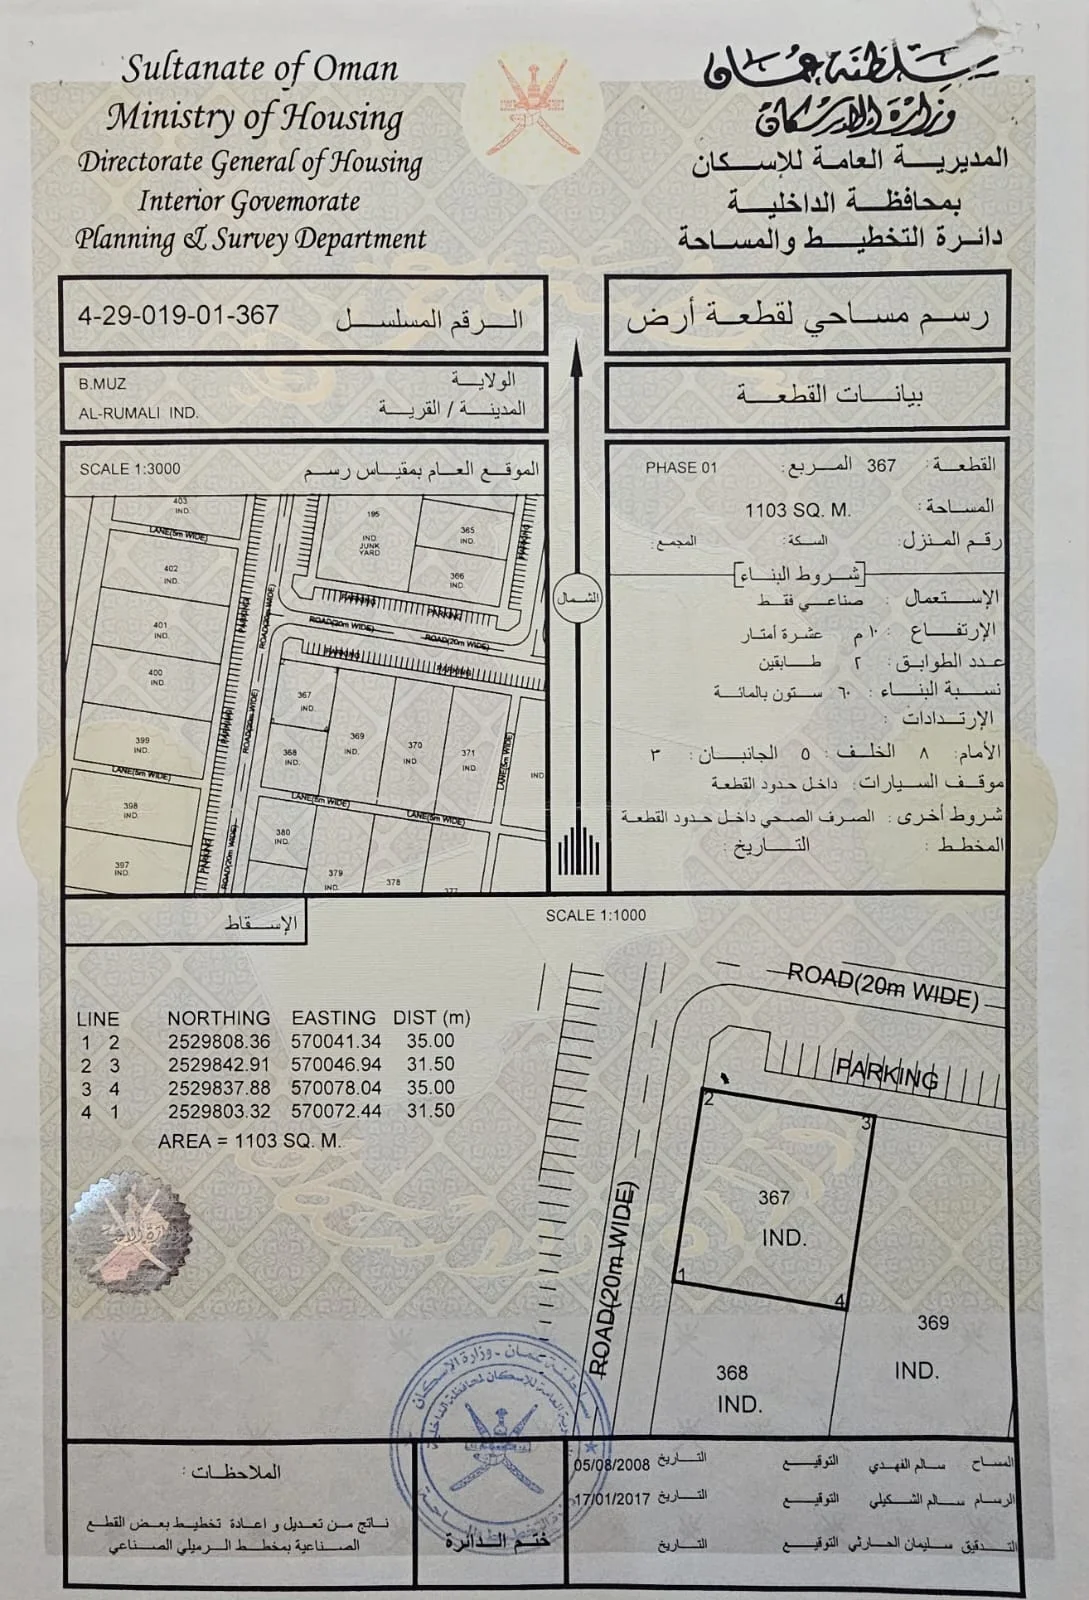 Sultanate of Oman
Ministry of Housing
Directorate General of Housing
Interior Governorate
Planning & Survey Department
سلطنة عمان
وزارة الإسكان
المديرية العامة للإسكان
بمحافظة الداخلية
دائرة التخطيط والمساحة
4-29-019-01-367 الرقم المسلسل
رسم مساحي لقطعة أرض
B.MUZ الولاية
AL-RUMALI IND. المدينة / القرية
بيانات القطعة
SCALE 1:3000 الموقع العام بمقياس رسم
403
IND.
LANE(5m WIDE)
402
IND.
401
IND.
400
IND.
399
IND.
LANE(5m WIDE)
398
IND.
397
IND.
PARKING
PARKING
PARKING
ROAD(20m WIDE)
ROAD(20m WIDE)
ROAD(20m WIDE)
195
IND.
JUNK
YARD
365
IND.
366
IND.
PARKING
PARKING
PARKING
ROAD(20m WIDE)
ROAD(20m WIDE)
PARKING
PARKING
367
IND.
368
IND.
369
IND.
370
IND.
371
IND.
IND
LANE(5m WIDE)
LANE(5m WIDE)
LANE(5m WIDE)
380
IND.
379
IND.
378
377
الشمال
القطعة: 367 المربع: PHASE 01
المساحة: 1103 SQ. M.
رقم المنزل: السكة: المجمع:
[شروط البناء]
الإستعمال : صناعي فقط
الإرتفاع : ١٠ م عشرة أمتار
عدد الطوابق: ٢ طابقين
نسبة البناء : ٦٠ ستون بالمائة
الإرتدادات :
الأمام: ٨ الخلف: ٥ الجانبان: ٣
موقف السيارات: داخل حدود القطعة
شروط أخرى: الصرف الصحي داخل حدود القطعة
المخطط : التاريخ :
الإسقاط
SCALE 1:1000
LINE NORTHING EASTING DIST (m)
1 2 2529808.36 570041.34 35.00
2 3 2529842.91 570046.94 31.50
3 4 2529837.88 570078.04 35.00
4 1 2529803.32 570072.44 31.50
AREA = 1103 SQ. M.
ROAD(20m WIDE)
PARKING
ROAD(20m WIDE)
2
3
367
IND.
1
4
368
IND.
369
IND.
الملاحظات :
ناتج من تعديل و اعادة تخطيط بعض القطع
الصناعية بمخطط الرميلي الصناعي
ختم الدائرة
المساح سالم الفهدي التوقيع التاريخ 05/08/2008
الرسام سالم الشكيلي التوقيع التاريخ 17/01/2017
التدقيق سليمان الحارثي التوقيع التاريخ